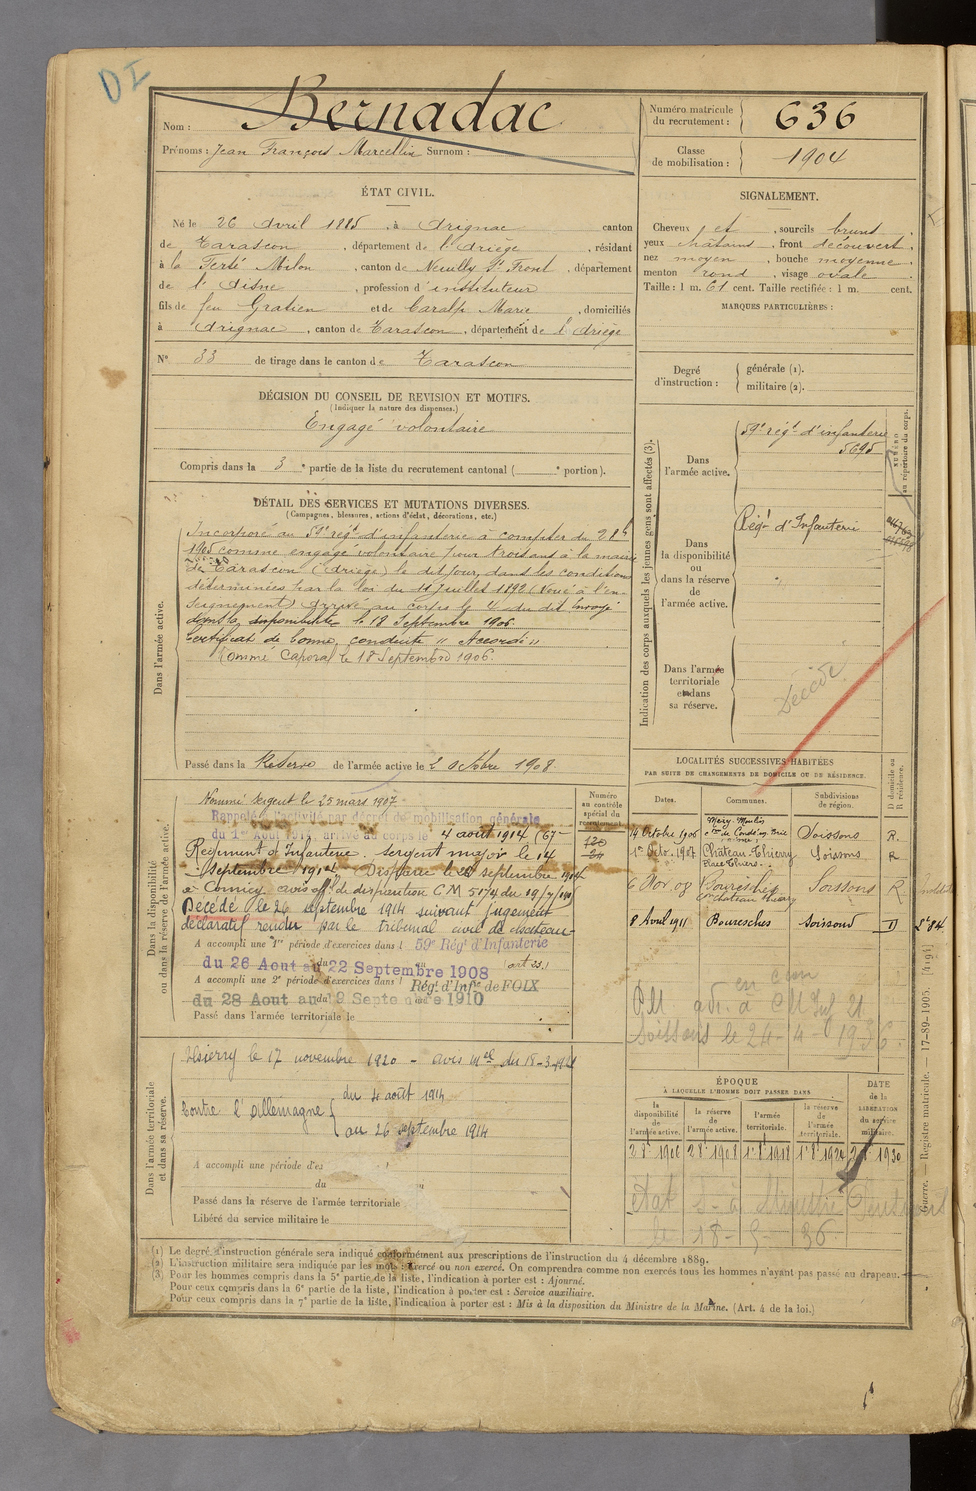 DI
Nom : Bernadac
Prénoms : Jean François Marcellin Surnom :
Numéro matricule du recrutement : 636
Classe de mobilisation : 1904
ÉTAT CIVIL.
Né le 26 Avril 1885, à Arignac canton
de Tarascon, département de l'Ariège, résidant
à la Ferté Milon, canton de Neuilly St Front, département
de l'Aisne, profession d'instituteur
fils de feu Gratien et de Caralp Marie, domiciliés
à Arignac, canton de Tarascon, département de l'Ariège
N° 33 de tirage dans le canton de Tarascon
SIGNALEMENT.
Cheveux et, sourcils bruns,
yeux châtains, front découvert,
nez moyen, bouche moyenne,
menton rond, visage ovale
Taille : 1 m. 61 cent. Taille rectifiée : 1 m. cent.
MARQUES PARTICULIÈRES :
Degré d'instruction : générale (1).
militaire (2).
DÉCISION DU CONSEIL DE REVISION ET MOTIFS.
(Indiquer la nature des dispenses.)
Engagé volontaire
Compris dans la 3e partie de la liste du recrutement cantonal ( e portion).
DÉTAIL DES SERVICES ET MUTATIONS DIVERSES.
(Campagnes, blessures, actions d'éclat, décorations, etc.)
Dans l'armée active.
Incorporé au 59e régt d'infanterie à compter du 2 8b
1905 comme engagé volontaire pour trois ans à la mairie
de Tarascon (Ariège) le dit jour, dans les conditions
déterminées par la loi du 11 juillet 1892 (Voué à l'en-
seignement) Arrivé au corps le 4 du dit Envoyé
dans la disponibilité le 18 Septembre 1906
Certificat de bonne conduite "Accordé"
Nommé Caporal le 18 Septembre 1906.
Passé dans la Réserve de l'armée active le 2 octobre 1908.
Indication des corps auxquels les jeunes gens sont affectés (3).
NUMÉRO au répertoire du corps.
Dans l'armée active.
59e régt d'infanterie
5695
Dans la disponibilité ou dans la réserve de l'armée active.
Régt d'Infanterie
Dans l'armée territoriale et dans sa réserve.
Décédé
Dans la disponibilité ou dans la réserve de l'armée active.
Nommé Sergent le 25 mars 1907 -
Rappelé à l'activité par décret de mobilisation générale
du 1er Août 1914, arrivé au corps le 4 août 1914 (67e
Régiment d'Infanterie. Sergent major le 14
septembre 1914. Disparu le 26 septembre 1914
à Cormicy avis off. de disparition CM 5174 du
Décédé le 26 septembre 1914 suivant jugement
déclaratif rendu par le tribunal civil de chateau-
A accompli une 1re période d'exercices dans l 59e Rég d'Infanterie
du 26 Aout au 22 Septembre 1908 (art 23.)
A accompli une 2e période d'exercices dans l Régt d'Infie de FOIX
du 28 Aout au Septembre 1910
Passé dans l'armée territoriale le
Numéro au contrôle spécial du recrutement.
LOCALITÉS SUCCESSIVES HABITÉES
PAR SUITE DE CHANGEMENTS DE DOMICILE OU DE RÉSIDENCE.
Dates. Communes. Subdivisions de région. D domicile ou R résidence.
14 Octobre 1906 Soissons R.
1er Octo. 1907 Château-Thierry Soissons R
6 Nov. 08 Bouresches con chateau thierry Soissons R
8 Avril 1911 Bouresches Soissons D
Soissons le 24-4-1936.
Dans l'armée territoriale et dans sa réserve.
Thierry le 17 novembre 1920 - avis mel du 18-3-1921
Contre l'Allemagne { du 4 août 1914
au 26 septembre 1914
A accompli une période d'ex
du au
Passé dans la réserve de l'armée territoriale
Libéré du service militaire le
ÉPOQUE
À LAQUELLE L'HOMME DOIT PASSER DANS
la disponibilité de l'armée active. la réserve de l'armée active. l'armée territoriale. la réserve de l'armée territoriale. DATE de la LIBÉRATION du service militaire.
2 8e 1906 2 8e 1908 1er 8e 1918 1er 8e 1924 1930
le 18-5-36
(1) Le degré d'instruction générale sera indiqué conformément aux prescriptions de l'instruction du 4 décembre 1889.
(2) L'instruction militaire sera indiquée par les mots : Exercé ou non exercé. On comprendra comme non exercés tous les hommes n'ayant pas passé au drapeau.
(3) Pour les hommes compris dans la 5e partie de la liste, l'indication à porter est : Ajourné.
Pour ceux compris dans la 6e partie de la liste, l'indication à porter est : Service auxiliaire.
Pour ceux compris dans la 7e partie de la liste, l'indication à porter est : Mis à la disposition du Ministre de la Marine. (Art. 4 de la loi.)
Guerre. — Registre matricule. — 17-89-1905. [4194]